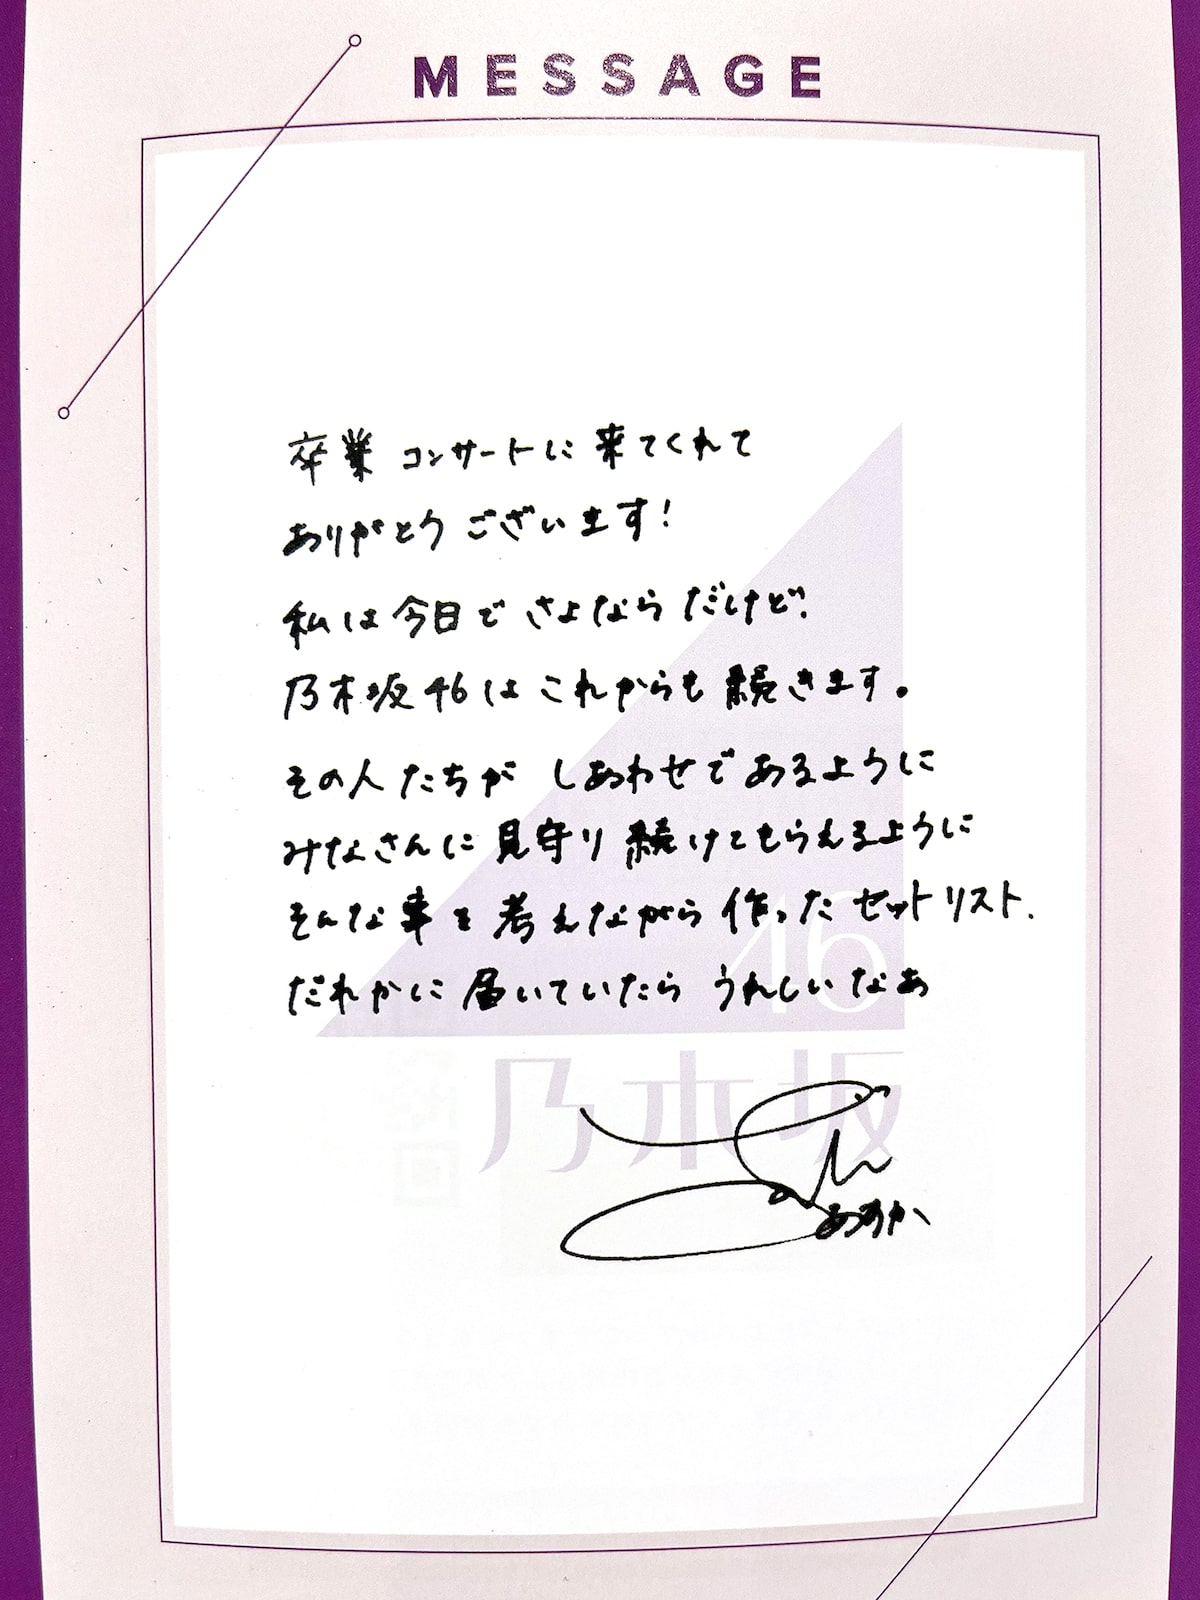 MESSAGE
卒業コンサートに来てくれて
ありがとうございます!
私は今日でさよならだけど、
乃木坂46はこれからも続きます。
その人たちがしあわせであるように
みなさんに見守り続けてもらえるように
そんな事を考えながら作ったセットリスト、
だれかに届いていたらうれしいなあ
46
乃木坂
あすか